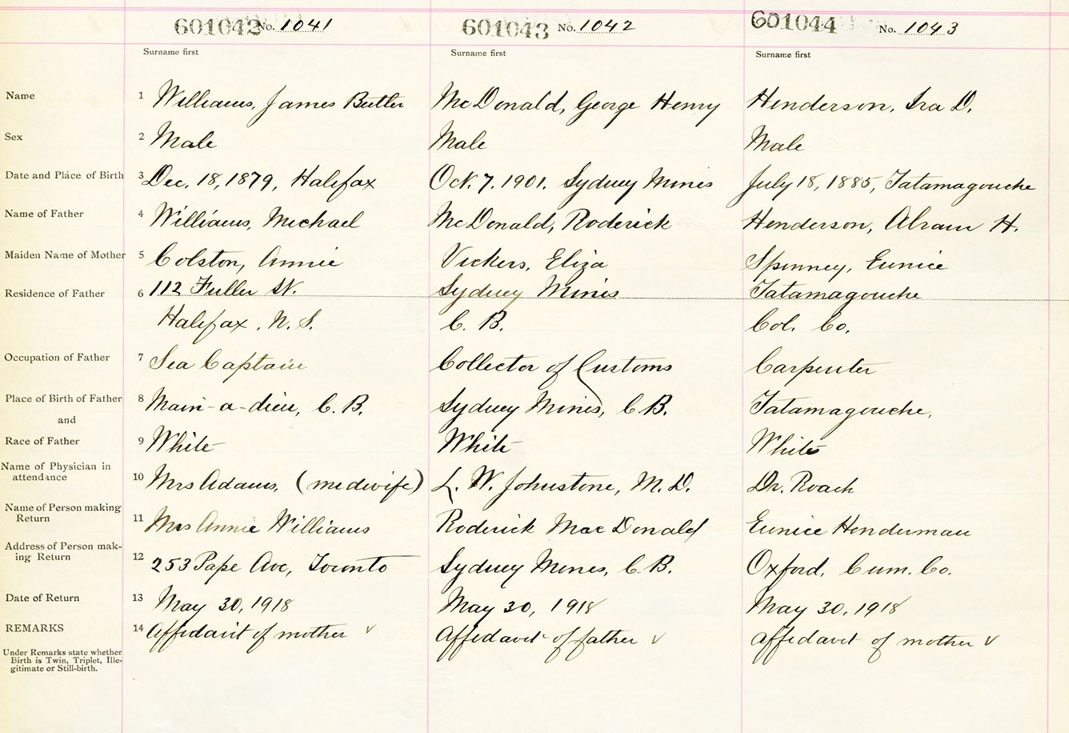 601042 No. 1041 601043 No. 1042 601044 No. 1043
Surname first Surname first Surname first
Name 1 Williams, James Butler McDonald, George Henry Henderson, Ira D.
Sex 2 Male Male Male
Date and Place of Birth 3 Dec. 18, 1879, Halifax Oct. 7. 1901. Sydney Mines July 18, 1885, Tatamagouche
Name of Father 4 Williams, Michael McDonald, Roderick Henderson, Abram H.
Maiden Name of Mother 5 Colston, Annie Vickers, Eliza Spinney, Eunice
Residence of Father 6 112 Fuller St. Sydney Mines Tatamagouche
Halifax, N. S. C. B. Col. Co.
Occupation of Father 7 Sea Captain Collector of Customs Carpenter
Place of Birth of Father 8 Main-a-dieu, C. B. Sydney Mines, C B. Tatamagouche,
and
Race of Father 9 White White White
Name of Physician in
attendance 10 Mrs Adams, (medwife) L. W. Johnstone, M. D. Dr. Roach
Name of Person making
Return 11 Mrs Annie Williams Roderick MacDonald Eunice
Address of Person mak-
ing Return 12 253 Pape Ave, Toronto Sydney Mines, C. B. Oxford, Cum. Co.
Date of Return 13 May 30, 1918 May 30, 1918 May 30, 1918
REMARKS 14 Affidavit of mother √ Affidavit of father √ Affidavit of mother √
Under Remarks state whether
Birth is Twin, Triplet, Ille-
gitimate or Still-birth.